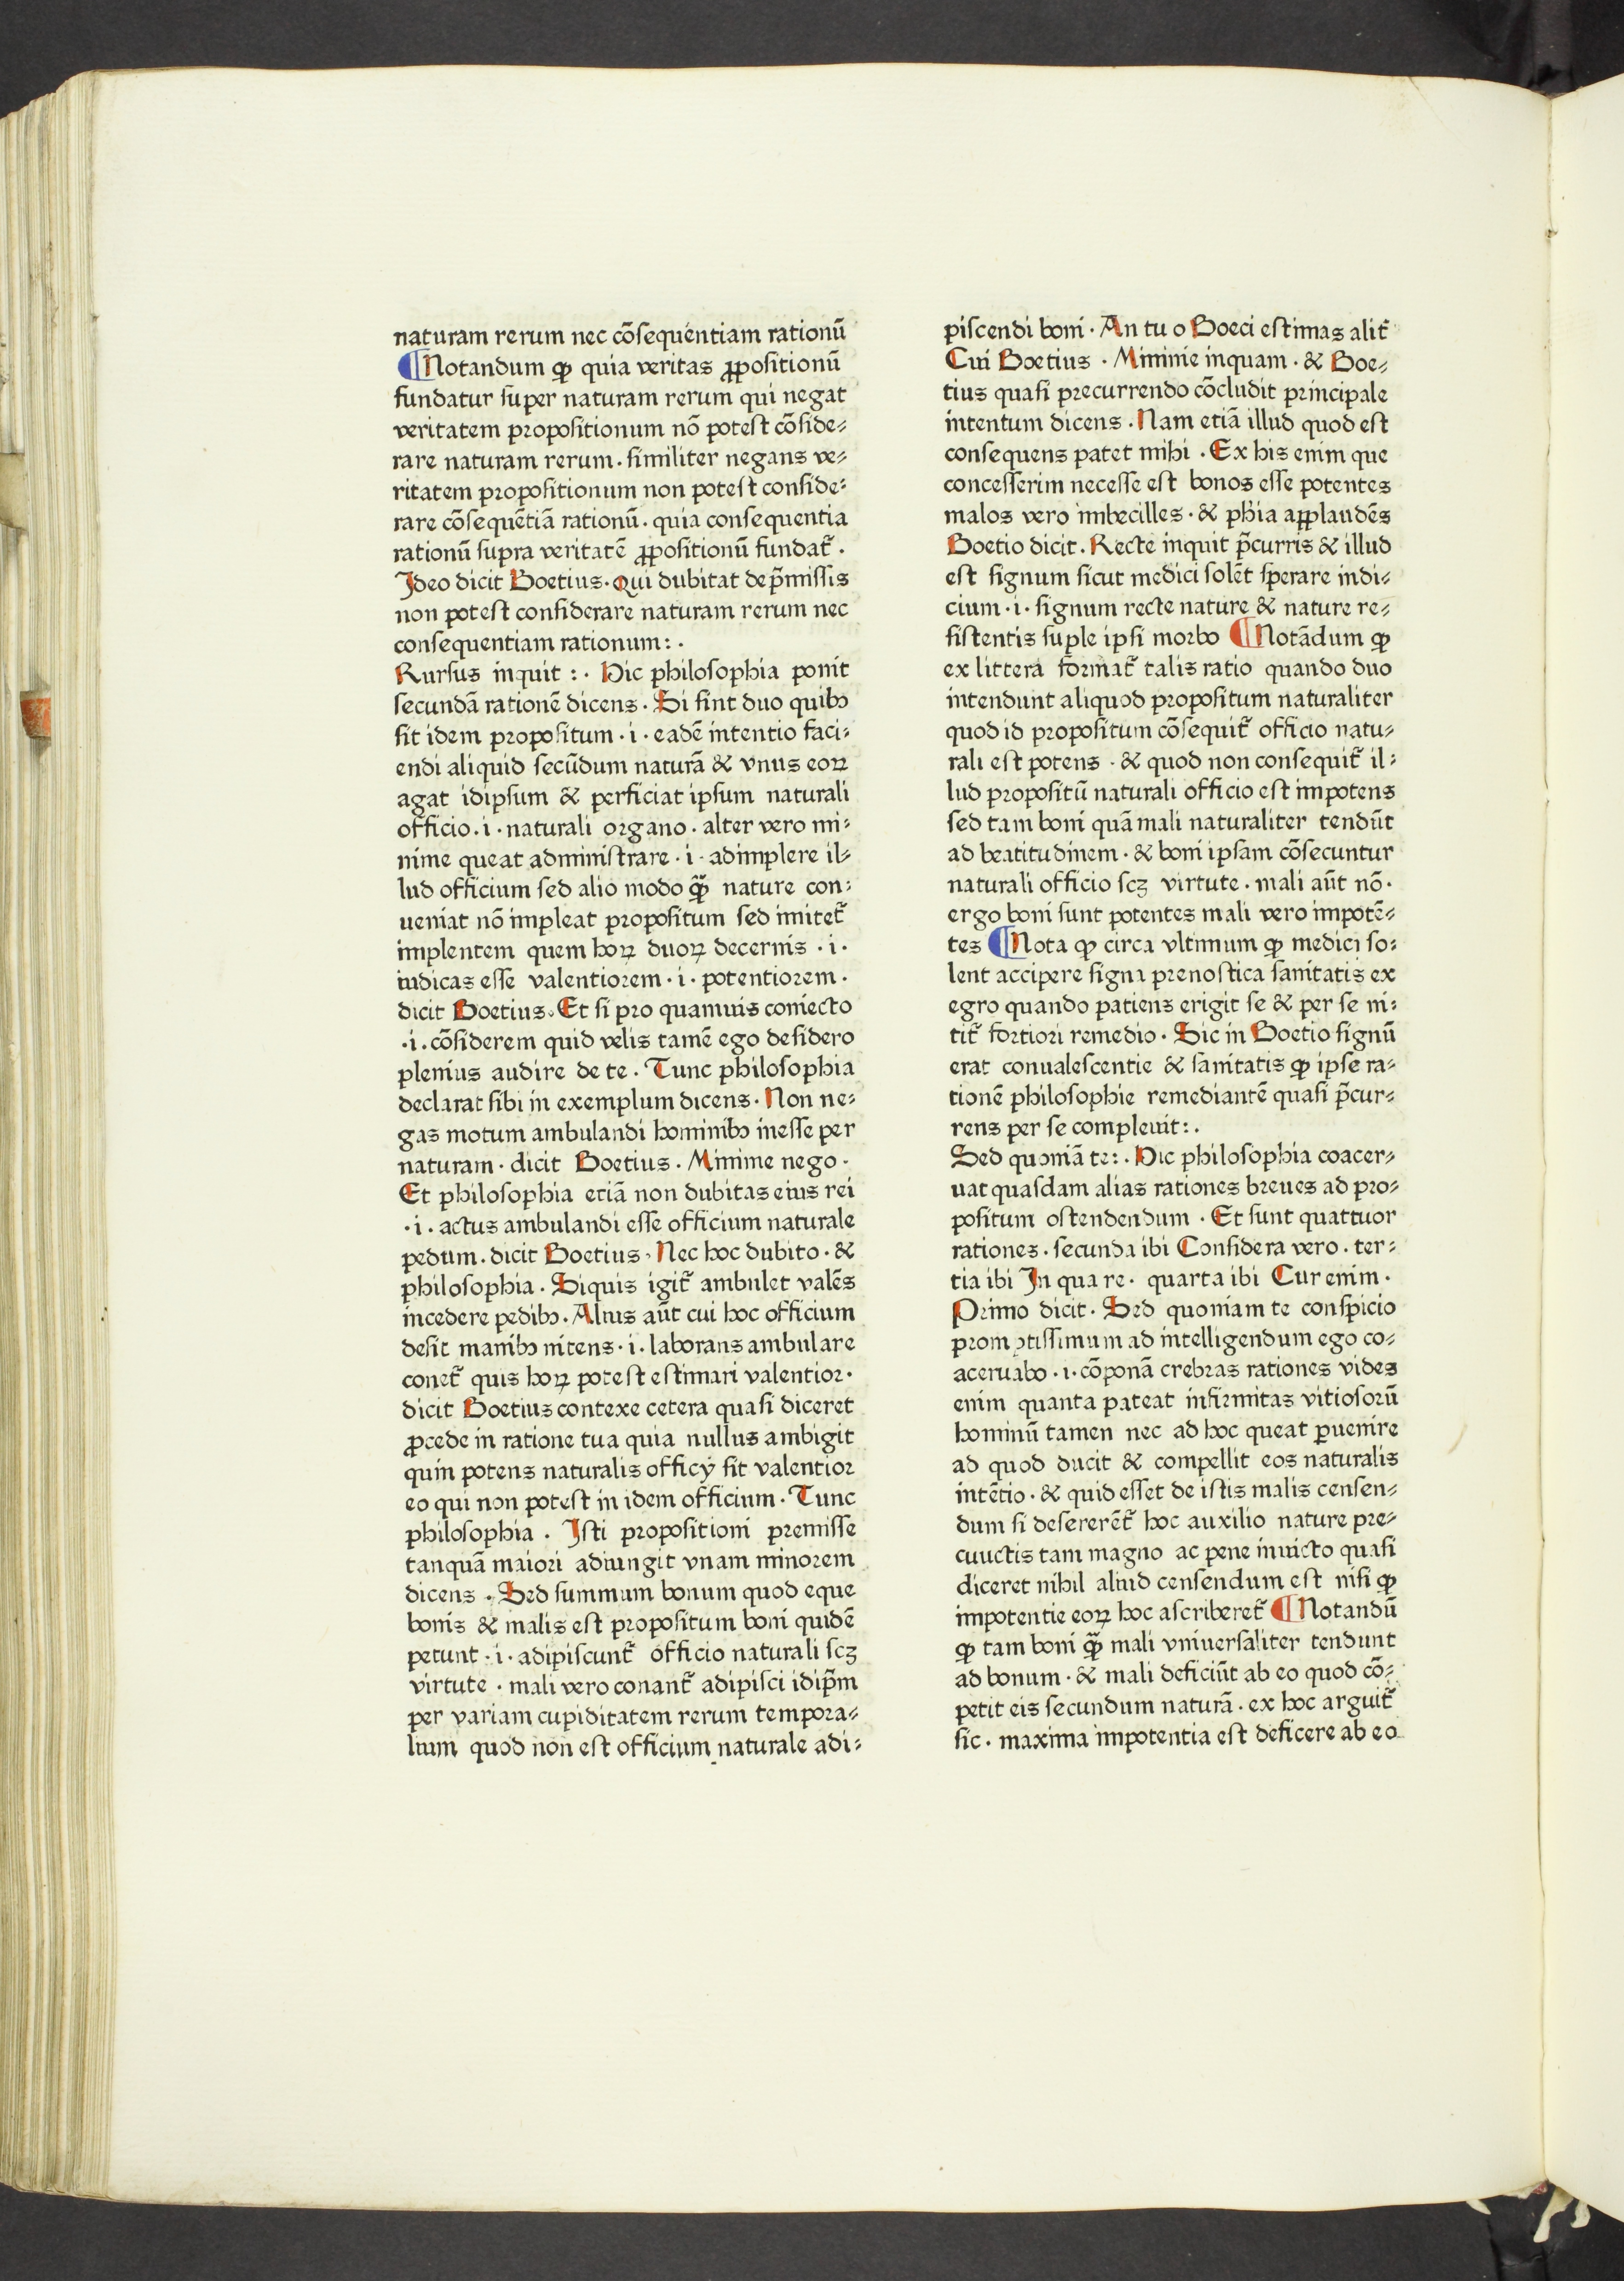 naturam rerum nec cõsequentiam rationũ
¶Notandum ꝙ quia veritas ꝓpositionũ
fundatur super naturam rerum qui negat
veritatem propositionum nõ potest cõside⸗
rare naturam rerum. similiter negans ve⸗
ritatem propositionum non potest conside⸗
rare cõsequẽtiã rationũ. quia consequentia
rationũ supra veritatẽ ꝓpositionũ fundat᷑.
Ideo dicit Boetius. Qui dubitat de p̃missis
non potest considerare naturam rerum nec
consequentiam rationum:.
Rursus inquit :. Hic philosophia ponit
secundã rationẽ dicens. Si sint duo quibꝫ
sit idem propositum .i. eadẽ intentio faci⸗
endi aliquid secũdum naturã & vnus eoꝝ
agat idipsum & perficiat ipsum naturali
officio .i. naturali organo. alter vero mi⸗
nime queat administrare .i. adimplere il⸗
lud officium sed alio modo q̃ꝫ nature con⸗
ueniat nõ impleat propositum sed imitet᷑
implentem quem hoꝝ duoꝝ decernis .i.
iudicas esse valentiorem .i. potentiorem.
dicit Boetius. Et si pro quamuis coniecto
.i. cõsiderem quid velis tamẽ ego desidero
plenius audire de te. Tunc philosophia
declarat sibi in exemplum dicens. Non ne⸗
gas motum ambulandi hominibꝫ inesse per
naturam. dicit Boetius. Minime nego.
Et philosophia etiã non dubitas eius rei
.i. actus ambulandi esse officium naturale
pedum. dicit Boetius. Nec hoc dubito. &
philosophia. Siquis igit᷑ ambulet valẽs
incedere pedibꝫ. Alius aũt cui hoc officium
desit manibꝫ nitens .i. laborans ambulare
conet᷑ quis hoꝝ potest estimari valentior.
dicit Boetius contexe cetera quasi diceret
ꝓcede in ratione tua quia nullus ambigit
quin potens naturalis officÿ sit valentior
eo qui non potest in idem officium. Tunc
philosophia. Isti propositioni premisse
tanquã maiori adiungit vnam minorem
dicens. Sed summum bonum quod eque
bonis & malis est propositum boni quidẽ
petunt .i. adipiscunt᷑ officio naturali scꝫ
virtute. mali vero conant᷑ adipisci idip̃m
per variam cupiditatem rerum tempora⸗
lium quod non est officium naturale adi⸗
piscendi boni. An tu o Boeci estimas alit᷑
Cui Boetius. Minime inquam. & Boe⸗
tius quasi precurrendo cõcludit principale
intentum dicens. Nam etiã illud quod est
consequens patet mihi. Ex his enim que
concesserim necesse est bonos esse potentes
malos vero imbecilles. & phia aꝓplaudẽs
Boetio dicit. Recte inquit p̃curris & illud
est signum sicut medici solẽt sperare indi⸗
cium .i. signum recte nature & nature re⸗
sistentis suple ipsi morbo ¶Notãdum ꝙ
ex littera format᷑ talis ratio quando duo
intendunt aliquod propositum naturaliter
quod id propositum cõsequit᷑ officio natu⸗
rali est potens. & quod non consequit᷑ il⸗
lud propositũ naturali officio est impotens
sed tam boni quã mali naturaliter tendũt
ad beatitudinem. & boni ipsam cõsecuntur
naturali officio scꝫ virtute. mali aũt nõ.
ergo boni sunt potentes mali vero impotẽ⸗
tes ¶Nota ꝙ circa vltimum ꝙ medici so⸗
lent accipere signa prenostica sanitatis ex
egro quando patiens erigit se & per se ni⸗
tit᷑ fortiori remedio. Sic in Boetio signũ
erat conualescentie & sanitatis ꝙ ipse ra⸗
tionẽ philosophie remediantẽ quasi p̃cur⸗
rens per se compleuit:.
Sed quoniã te:. Hic philosophia coacer⸗
uat quasdam alias rationes breues ad pro⸗
positum ostendendum. Et sunt quattuor
rationes. secunda ibi Considera vero. ter⸗
tia ibi In qua re. quarta ibi Cur enim.
Primo dicit. Sed quoniam te conspicio
promptissimum ad intelligendum ego co⸗
aceruabo .i. cõponã crebras rationes vides
enim quanta pateat infirmitas vitiosorũ
hominũ tamen nec ad hoc queat ꝑuenire
ad quod ducit & compellit eos naturalis
intẽtio. & quid esset de istis malis censen⸗
dum si desererẽt᷑ hoc auxilio nature pre⸗
cuuctis tam magno ac pene inuicto quasi
diceret nihil aliud censendum est nisi ꝙ
impotentie eoꝝ hoc ascriberet᷑ ¶Notandũ
ꝙ tam boni q̃ꝫ mali vniuersaliter tendunt
ad bonum. & mali deficiũt ab eo quod cõ⸗
petit eis secundum naturã. ex hoc arguit᷑
sic. maxima impotentia est deficere ab eo